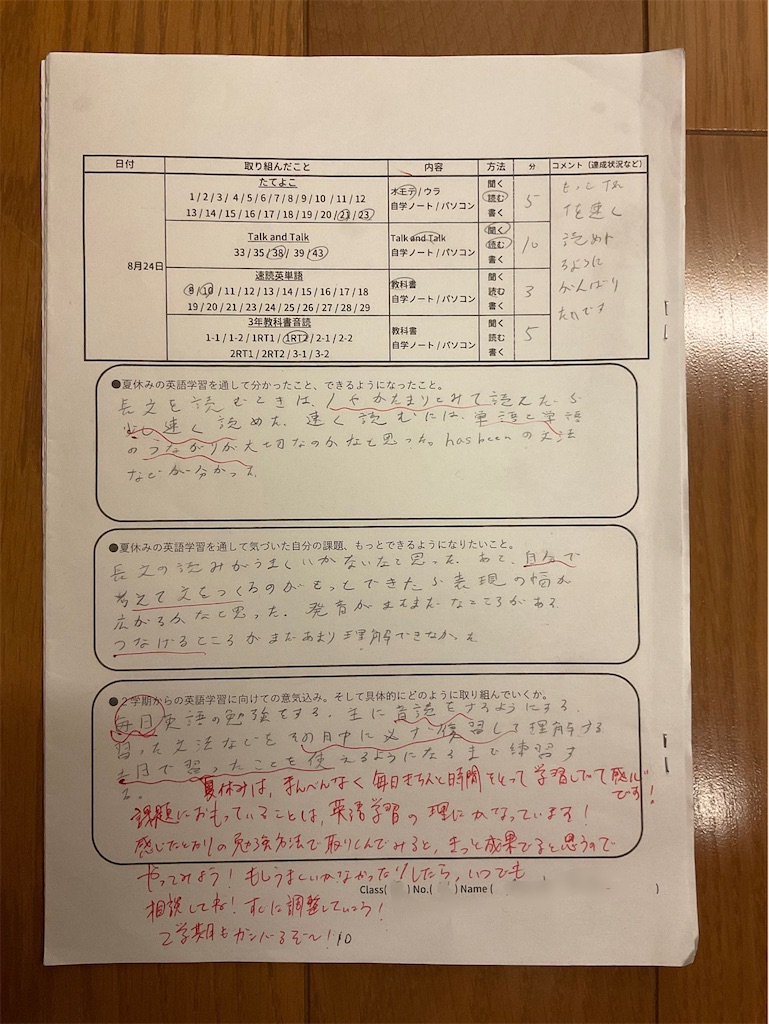 日付 取り組んだこと 内容 方法 分 コメント（達成状況など）
8月24日
たてよこ
1 / 2 / 3 / 4 / 5 / 6 / 7 / 8 / 9 / 10 / 11 / 12
13 / 14 / 15 / 16 / 17 / 18 / 19 / 20 / 21 / 23
オモテ / ウラ
自学ノート / パソコン
聞く
読む
書く
5
Talk and Talk
33 / 35 / 38 / 39 / 43
Talk and Talk
自学ノート / パソコン
聞く
読む
書く
10
速読英単語
9 / 10 / 11 / 12 / 13 / 14 / 15 / 16 / 17 / 18
19 / 20 / 21 / 22 / 23 / 24 / 25 / 26 / 27 / 28 / 29
教科書
自学ノート / パソコン
聞く
読む
書く
3
3年教科書音読
1-1 / 1-2 / 1RT1 / 1RT2 / 2-1 / 2-2
2RT1 / 2RT2 / 3-1 / 3-2
教科書
自学ノート / パソコン
聞く
読む
書く
5
もっと
を速く
読めれ
るように
がんばり
たいです
●夏休みの英語学習を通して分かったこと、できるようになったこと。
長文を読むときは、 かたまりとみて読んだら
少し速く読めた。速く読むには、単語と単語
のつながりが大切なのかなと思った。has beenの文法
などが分かった
●夏休みの英語学習を通して気づいた自分の課題、もっとできるようになりたいこと。
長文の読みがうまくいかないなと思った。あと、自分で
考えて文をつくるのがもっとできたら表現の幅が
広がるかなと思った。発音がまだまだなところがある
つなげるところがまだあまり理解できなかった
●２学期からの英語学習に向けての意気込み。そして具体的にどのように取り組んでいくか。
毎日英語の勉強をする。主に音読をするようにする。
習った文法などをその日中に必ず復習して理解する
土日で習ったことを使えるようになるまで練習す
る。
夏休みは、まんべんなく毎日きちんと時間をとって学習してて感心
です！
課題におもっていることは、英語学習の理にかなっています！
感じたとおりの勉強方法で取りくんでみると、きっと成果でると思うので
やってみよう！もしうまくいかなかったりしたら、いつでも
相談してね！すぐに調整していこう！
2学期もガンバるぞ〜！10
Class( ) No.( ) Name ( )